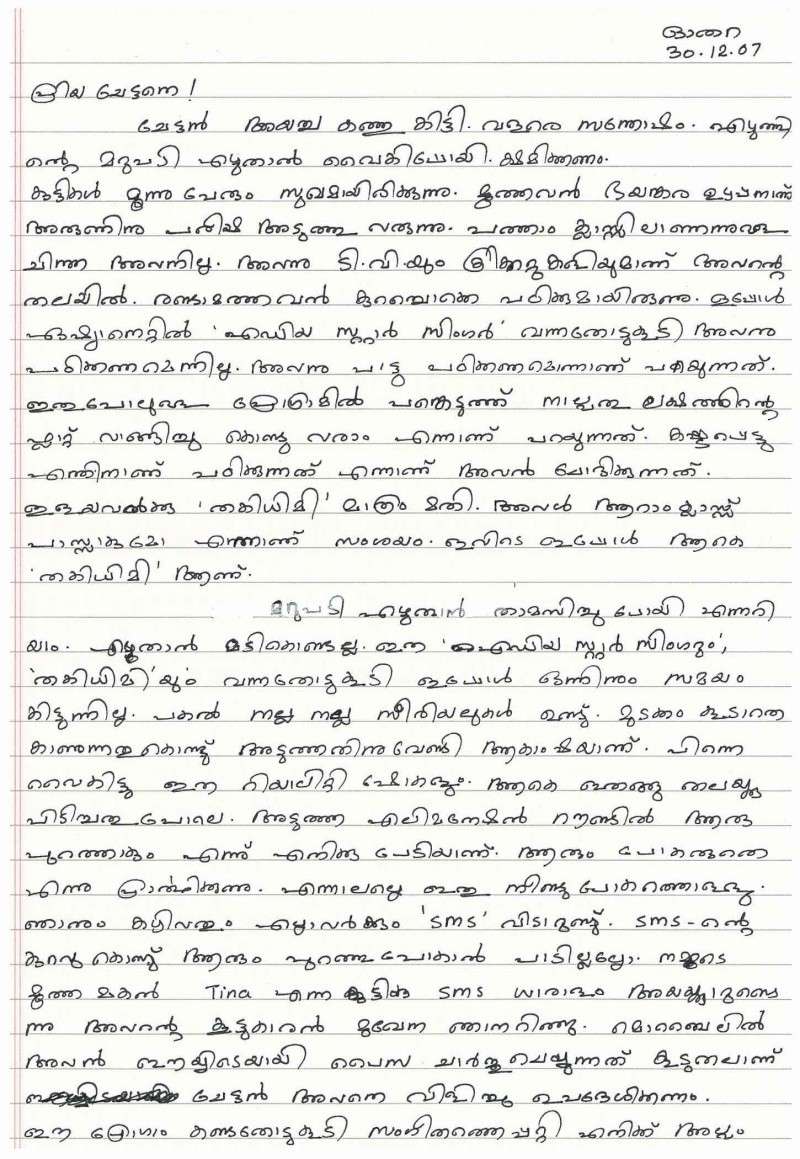 ഓതറ
30.12.07
പ്രിയ ചേട്ടനെ!
ചേട്ടൻ അയച്ച കത്തു കിട്ടി. വളരെ സന്തോഷം. എഴുത്തി
ന്റെ മറുപടി എഴുതാൻ വൈകിപ്പോയി. ക്ഷമിക്കണം.
കുട്ടികൾ മൂന്നു പേരും സുഖമായിരിക്കുന്നു. മൂത്തവൻ ഭയങ്കര ഉഴപ്പനാണ്
അരുണിനു പരീക്ഷ അടുത്തു വരുന്നു. പത്താം ക്ലാസ്സിലാണെന്നുള്ള
ചിന്ത അവനില്ല. അവനു ടി.വി.യും ക്രിക്കറ്റുകളിയുമാണ് അവന്റെ
തലയിൽ. രണ്ടാമത്തവൻ കുറച്ചൊക്കെ പഠിക്കുമായിരുന്നു. ഇപ്പോൾ
ഏഷ്യാനെറ്റിൽ 'ഐഡിയ സ്റ്റാർ സിംഗർ' വന്നതോടുകൂടി അവനു
പഠിക്കണമെന്നില്ല. അവനു പാട്ടു പഠിക്കണമെന്നാണ് പറയുന്നത്.
ഇതുപോലുള്ള പ്രോഗ്രാമിൽ പങ്കെടുത്ത് നാല്പതു ലക്ഷത്തിന്റെ
ഫ്ലാറ്റ് വാങ്ങിച്ചു കൊണ്ടു വരാം എന്നാണ് പറയുന്നത്. കഷ്ടപ്പെട്ടു
എന്തിനാണ് പഠിക്കുന്നത് എന്നാണ് അവൻ ചോദിക്കുന്നത്.
ഇളയവൾക്കു 'തകിധിമി' മാത്രം മതി. അവൾ ആറാം ക്ലാസ്സ്
പാസ്സാകുമോ എന്നാണ് സംശയം. ഇവിടെ ഇപ്പോൾ ആകെ
'തകിധിമി' ആണ്.
മറുപടി എഴുതുവാൻ താമസിച്ചു പോയി എന്നറി
യാം. എഴുതാൻ മടികൊണ്ടല്ല. ഈ 'ഐഡിയ സ്റ്റാർ സിംഗറും',
'തകിധിമി'യും വന്നതോടുകൂടി ഇപ്പോൾ ഒന്നിനും സമയം
കിട്ടുന്നില്ല. പകൽ നല്ല നല്ല സീരിയലുകൾ ഉണ്ട്. മുടക്കം കൂടാതെ
കാണുന്നതുകൊണ്ട് അടുത്തതിനുവേണ്ടി ആകാംഷയാണ്. പിന്നെ
വൈകിട്ടു ഈ റിയാലിറ്റി ഷോകളും. ആകെ ഭ്രാന്തു തലയ്ക്കു
പിടിച്ചതു പോലെ. അടുത്ത എലിമനേഷൻ റൗണ്ടിൽ ആരു
പുറത്താകും എന്ന് എനിക്കു പേടിയാണ്. ആരും പോകരുതെ
എന്നു പ്രാർത്ഥിക്കുന്നു. എന്നാലല്ലെ ഇതു നീണ്ടുപോകത്തൊള്ളു.
ഞാനും കഴിവതും എല്ലാവർക്കും 'SMS' വിടാറുണ്ട്. SMS-ന്റെ
കുറവുകൊണ്ട് ആരും പുറത്തുപോകാൻ പാടില്ലല്ലോ. നമ്മുടെ
മൂത്ത മകൻ Tina എന്ന കുട്ടിക്കു SMS ധാരാളം അയയ്ക്കാറുണ്ടെ
ന്നു അവന്റെ കൂട്ടുകാരൻ മുഖേന ഞാനറിഞ്ഞു. മൊബൈലിൽ
അവൻ ഈയിടെയായി പൈസ ചാർജ്ജുചെയ്യുന്നത് കൂടുതലാണ്
ചേട്ടൻ അവനെ വിളിച്ചു ഉപദേശിക്കണം.
ഈ പ്രോഗ്രാം കണ്ടതോടുകൂടി സംഗീതത്തെപ്പറ്റി എനിക്ക് അല്പം